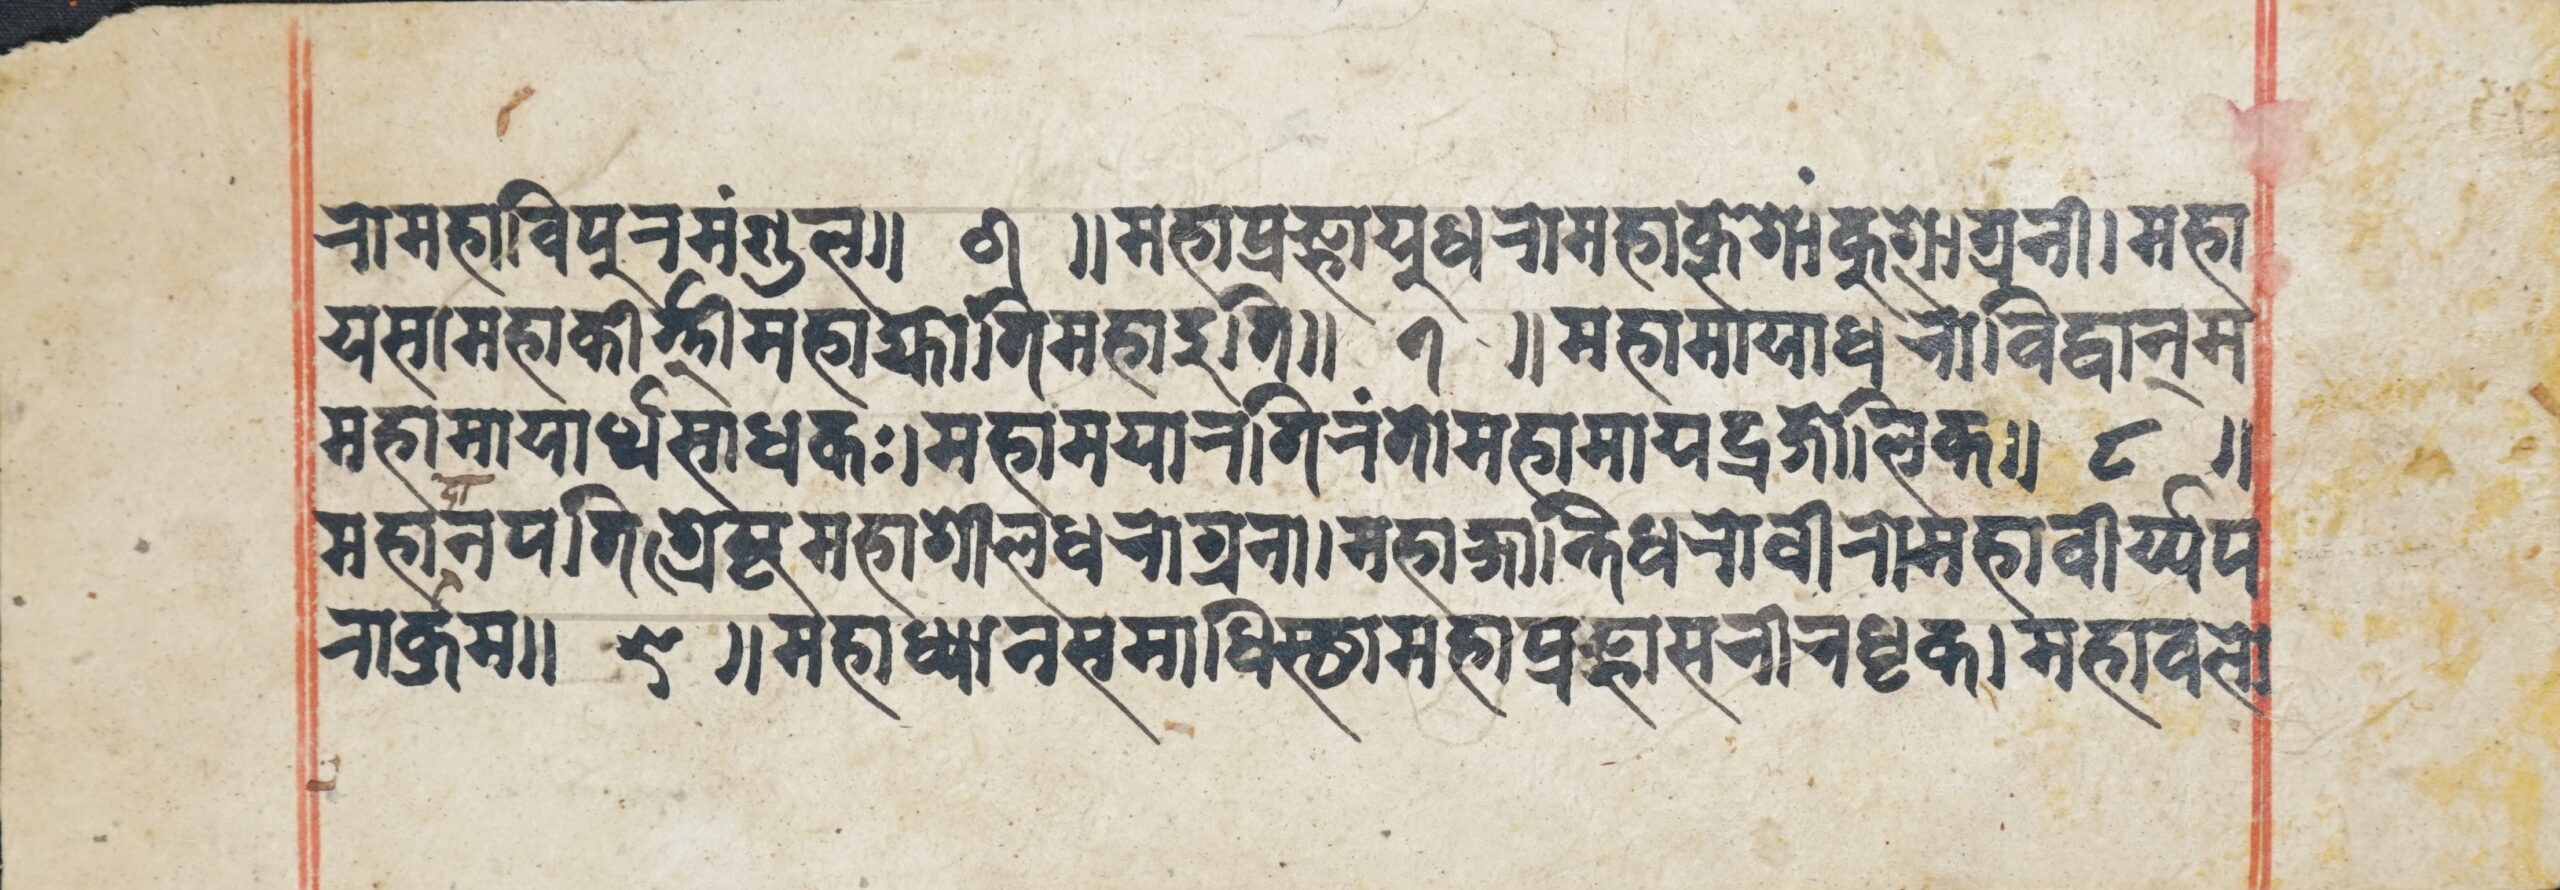 रोमहाविपुरमंशुल॥ ६ ॥महाप्रज्ञायुधरोमहाक्लेशांकुशाग्रनी।महा
यसामहाकीर्त्तीमहाज्योतिमहादुति॥ ७ ॥महामायाधरोविद्वान्म
महामायार्थसाधकः।महामयारतिरंतोमहामायद्रजोलिकः॥ ८ ॥
महादानपतिश्रेष्टमहाशीलधरोग्रना।महाक्षान्तिधरोवीरोमहावीर्य्यप
राक्रम॥ ९ ॥महाध्यानसमाधिस्ठामहाप्रज्ञासरीरधृक।महावलो